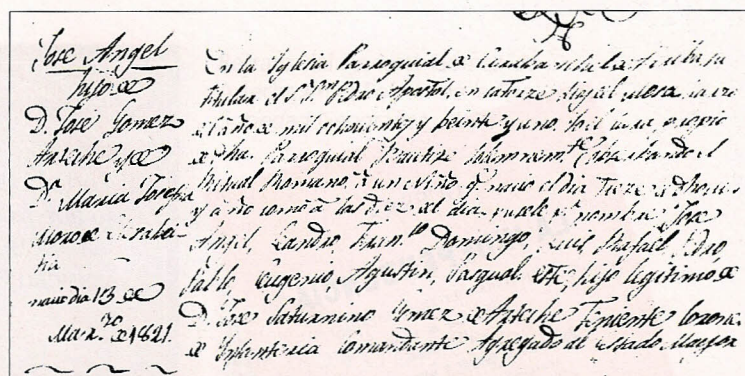 Jose Angel
hijo de
D. Jose Gomez
Arteche y de
Dª Maria Josefa
Moro de Elexabei-
tia
nacio dia 13 de
Marzo de 1821.
En la Yglesia Parroquial de
titular el Sr. Sn. Pedro Apostol, en catorze dias del mes de
el año de mil ochocientos y veinte y uno, Yo el cura propio
de dha. Parroquial Bautize solemnemte. Executando el
Ritual Romano, á un niño qe. nacio el dia treze de dho mes
y año como á las diez del dia, pusele pr. nombre Jose
Angel, Leandro, Fran.co Domingo, Luis, Rafael, Pedro,
Pablo, Eugenio, Agustin, Pasqual. Este, hijo legitimo de
D. Jose Saturnino Gomez de Arteche Teniente Corone
de Ynfanteria Comandante Agregado al Estado Mayor